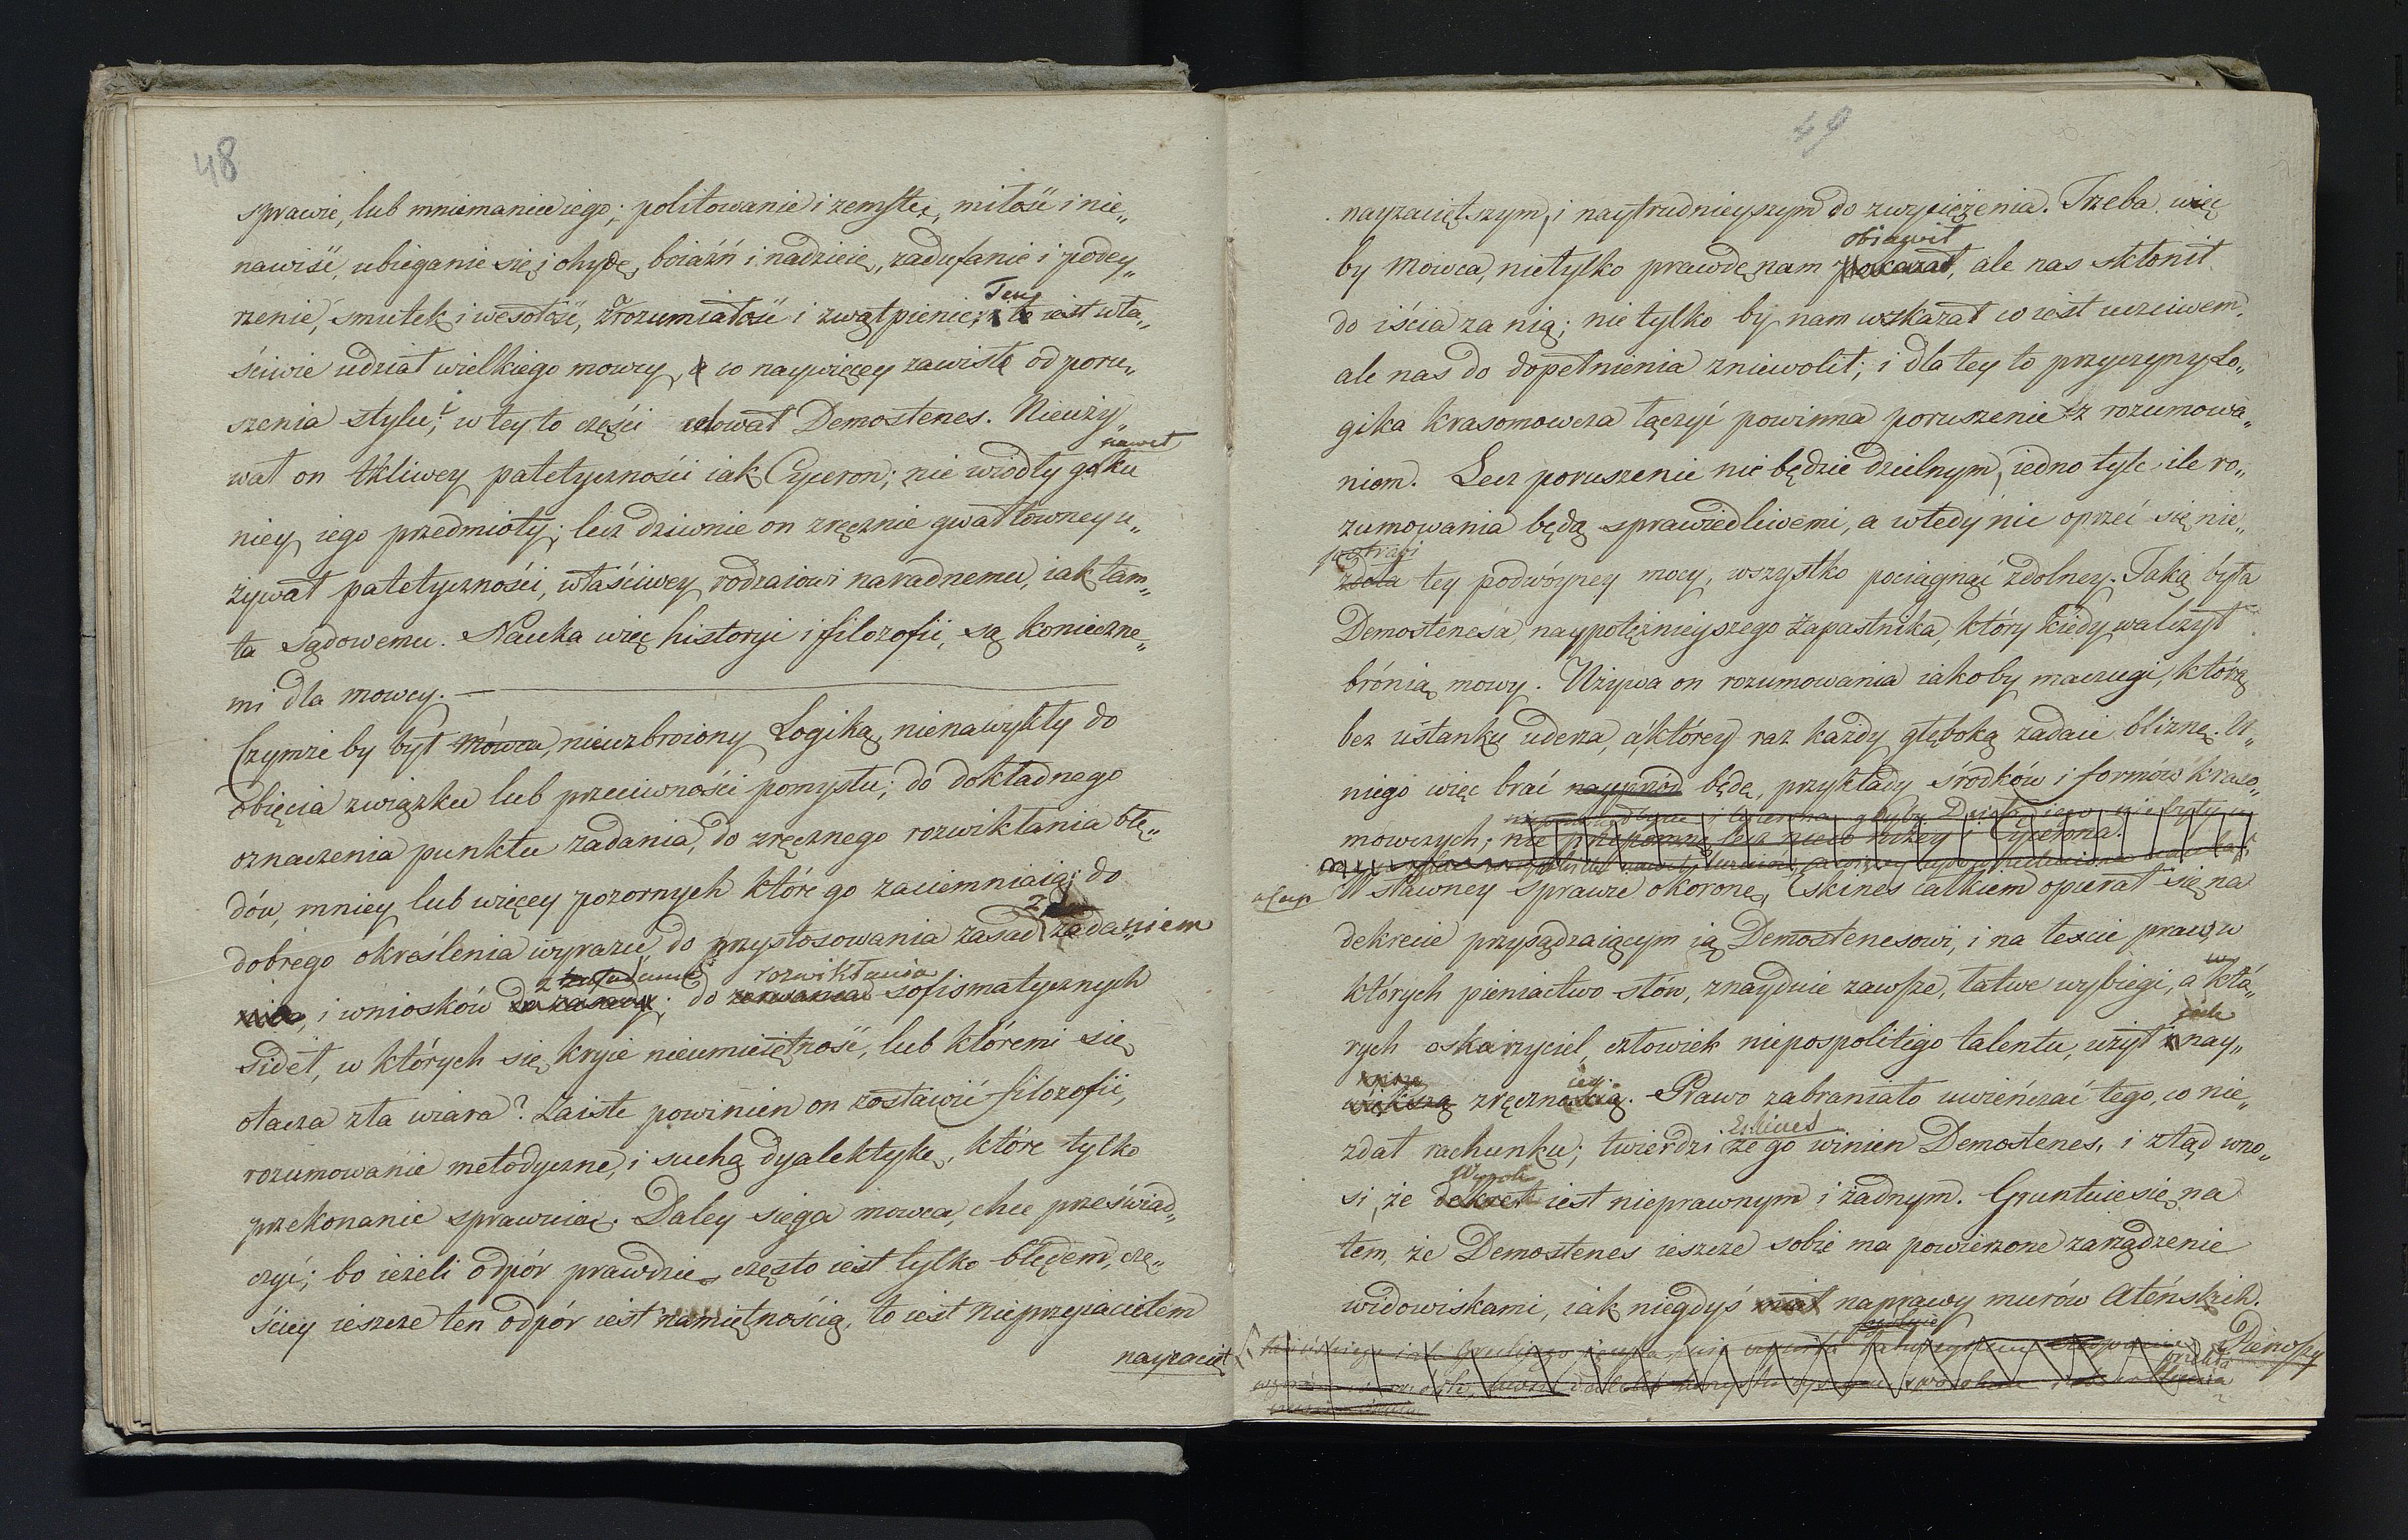 48
sprawie, lub mniemaniu iego; politowanie i zemstę, miłość i nie„
nawiść, ubieganie się i ohydę, boiaźń i nadzieię, zadufanie i podey„
rzenie, smutek i wesołość, zrozumiałość i zwątpienie; Ten iest wła„
ściwie udział wielkiego mowcy, a co naywięcey zawisło od poru„
szenia stylu; i w tey to części celował Demostenes. Nieuży„
nawet
wał on tkliwey patetyczności iak Cyceron; nie wiodły go ku
niey iego przedmioty; lecz dziwnie on zręcznie gwałtowney u„
żywał patetyczności, właściwey rodzaiowi naradnemu, iak tam„
ta sądowemu. Nauka więc historyi i filozofii, są konieczne„
mi dla mowcy. —
Czymże by był mówca, nieuzbroiony Logiką, nienawykły do
obięcia związku lub przeciwności pomysłu; do dokładnego
oznaczenia punktu zadania, do zręcznego rozwikłania błę„
dów, mniey lub więcey pozornych które go zaciemniaią; do
dobrego określenia wyrazu, do przystosowania zasad z zadaniem
rozwikłania
i wniosków do zasady; do zerwania sofismatycznych
sideł, w których się kryie nieumieiętność, lub któremi się
otacza zła wiara? Zaiste powinien on zostawić filozofii,
rozumowanie metodyczne, i suchą dyalektykę, które tylko
przekonanie sprawuią. Daley sięga mowca, chce przeświad„
czyć; bo ieżeli odpór prawdzie, często iest tylko błędem, czę„
ściey ieszcze ten odpór iest namiętnością, to iest nieprzyiacielem
nayzacięt
49
nayzaciętszym, i naytrudnieyszym do zwyciężenia. Trzeba więc
obiawił
by Mowca, nietylko prawdę nam pokazał, ale nas skłonił
do iścia za nią; nie tylko by nam wskazał co iest uczciwem,
ale nas do dopełnienia zniewolił; i dla tey to przyczyny Lo„
gika krasomowcza łączyć powinna poruszenie z rozumowa„
niem. Lecz poruszenie nie będzie dzielnym, iedno tyle, ile ro„
zumowania będą sprawiedliwemi, a wtedy nic oprzeć się nie„
potrafi
zdoła tey podwóyney mocy, wszystko pociągnąć zdolney. Taką była
Demostenesa, naypotężnieyszego zapaśnika, który kiedy walczył
brónią mowy. Używa on rozumowania iakoby maczugi, którą
bez ustanku uderza, a którey raz każdy głęboką zadaie bliznę. U„
niego więc brać nayprzód będę, przykłady środków i formów kraso„
mowczych, nie przepomnę lecz nieco niżey i Cycerona.
W sławney sprawie o koronę, Eskines całkiem opierał się na
dekrecie przysądzaiącym ią Demostenesowi, i na texcie praw, w
których pieniactwo słów, znayduie zawsze, łatwe wybiegi, a któ„
rych oskarzyciel, człowiek niepospolitego talentu, użył iak nay„
większą zręcznością. Prawo zabraniało uwieńczać tego, co nie„
Eskines
zdał rachunku; twierdzi że go winien Demostenes, i ztąd wno„
Wyrok
si, że dekret iest nieprawnym i żadnym. Gruntuie się na
tem, że Demostenes ieszcze sobie ma powierzone zarządzenie
widowiskami, iak niegdyś miał naprawy murów Ateńskich.
Pierwszy